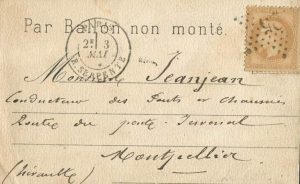 Par Ballon non monté.
PARIS
2E 3
MAI
R. SERPENTE
Monsieur Jeanjean
Conducteur des Ponts et chaussées
Route du
Montpellier
(hérault)